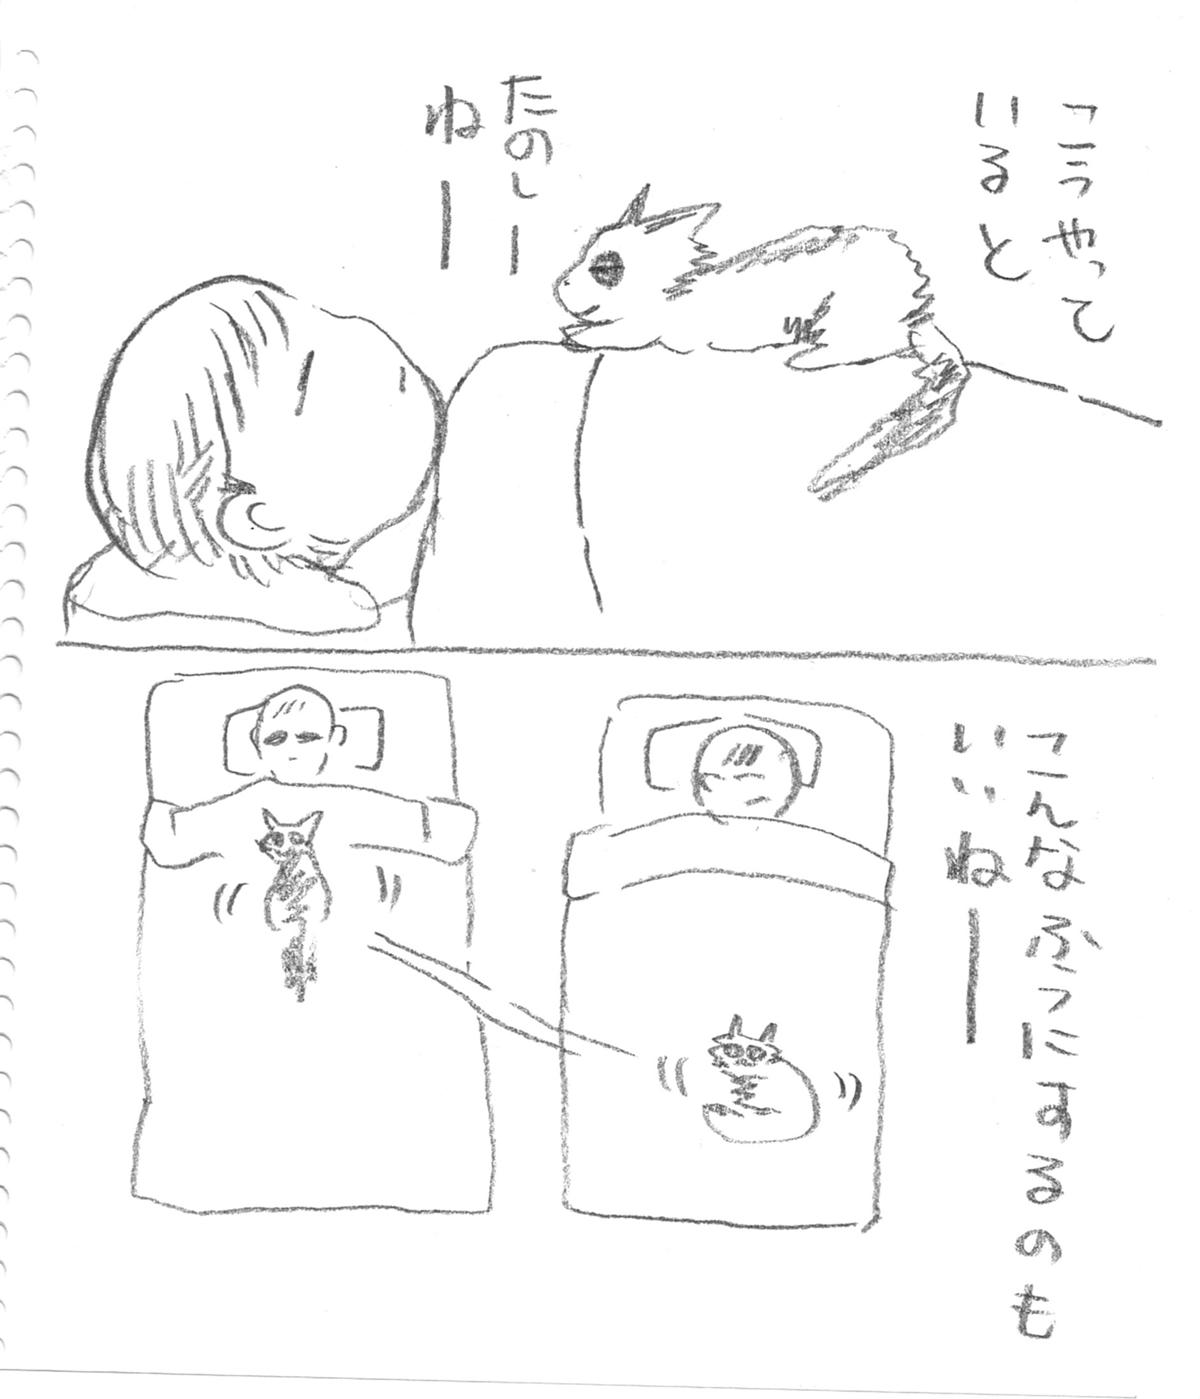 こうやって
いると
たのしー
ねー
こんなふうにするのも
いいねー